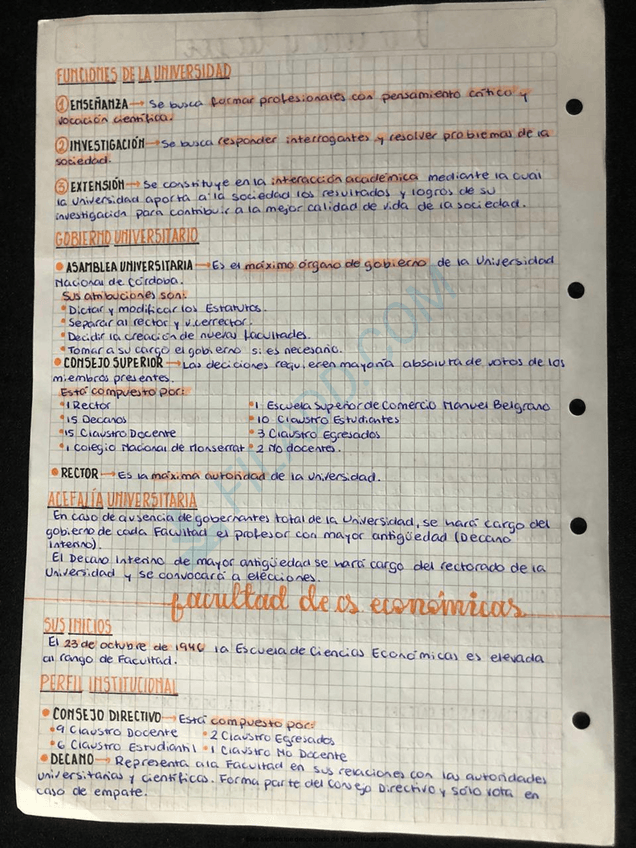 FUNCIONES DE LA UNIVERSIDAD
① ENSEÑANZA → Se busca formar profesionales con pensamiento crítico y
vocación científica.
② INVESTIGACIÓN → Se busca responder interrogantes y resolver problemas de la
sociedad.
③ EXTENSIÓN → Se constituye en la interacción académica mediante la cual
la Universidad aporta a la sociedad los resultados y logros de su
investigación para contribuir a la mejor calidad de vida de la sociedad.
GOBIERNO UNIVERSITARIO
• ASAMBLEA UNIVERSITARIA → Es el máximo órgano de gobierno de la Universidad
Nacional de Córdoba.
Sus atribuciones son:
• Dictar y modificar los Estatutos.
• Separar al rector y vicerrector.
• Decidir la creación de nuevas facultades.
• Tomar a su cargo el gobierno si es necesario.
• CONSEJO SUPERIOR → Las decisiones requieren mayoría absoluta de votos de los
miembros presentes.
Está compuesto por:
• 1 Rector • 1 Escuela Superior de Comercio Manuel Belgrano
• 15 Decanos • 10 Claustro Estudiantes
• 15 Claustro Docente • 3 Claustro Egresados
• 1 Colegio Nacional de Monserrat • 2 No docentes.
• RECTOR → Es la máxima autoridad de la Universidad.
ACEFALÍA UNIVERSITARIA
En caso de ausencia de gobernantes total de la Universidad, se hará cargo del
gobierno de cada Facultad el profesor con mayor antigüedad (Decano
Interino).
El Decano Interino de mayor antigüedad se hará cargo del rectorado de la
Universidad y se convocará a elecciones.
facultad de cs económicas
SUS INICIOS
El 23 de octubre de 1946 la Escuela de Ciencias Económicas es elevada
al rango de Facultad.
PERFIL INSTITUCIONAL
• CONSEJO DIRECTIVO → Está compuesto por:
• 9 Claustro Docente • 2 Claustro Egresados
• 6 Claustro Estudiantil • 1 Claustro No Docente
• DECANO → Representa a la Facultad en sus relaciones con las autoridades
universitarias y científicas. Forma parte del Consejo Directivo y sólo vota en
caso de empate.